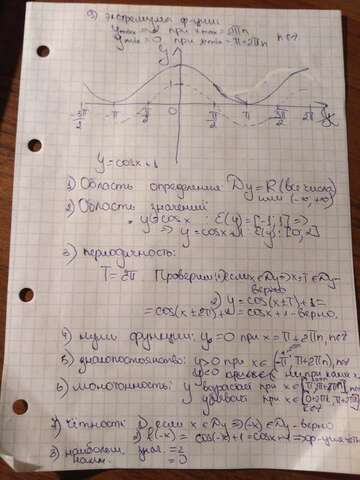 9) экстремумы функции:
y max = 2 при x max = 2πn
y min = 0 при x min = π+2πn n∈Z
y
0
-3π/2 -π -π/2 π/2 π 3π/2 2π x
y = cosx+1
1) Область определения Dy=R (все числа
или (-∞;+∞)
2) Область значений
y=cosx E(y)=[-1;1] =>
=> y=cosx+1 E(y): [0;2]
3) периодичность:
T=2π Проверим: 1) если x∈Dy => x+T∈Dy-
верно
2) y=cos(x+T)+1=
=cos(x+2π)+1=cosx+1 -верно.
4) нули функции: y=0 при x=π+2πn, n∈Z
5) знакопостоянство: y>0 при x∈
y<0 ни при каких x
6) монотонность: y возрастает при x∈
убывает при x∈
7) чётность: 1) если x∈Dy => (-x)∈Dy - верно
2) f(-x)= cos(-x)+1=cosx+1 =>
8) наибольш. знач. = 2
наим. = 0